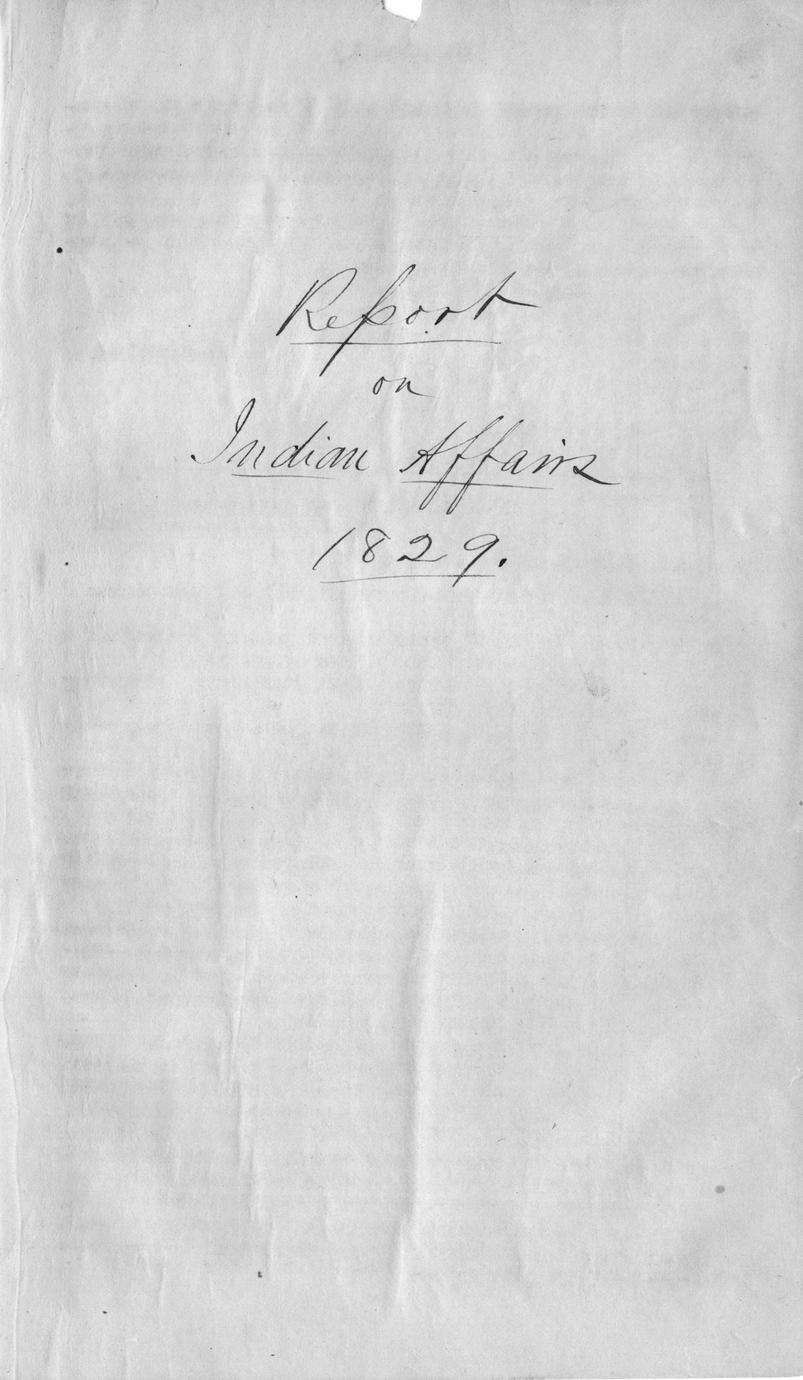 Report
on
Indian Affairs
1829.